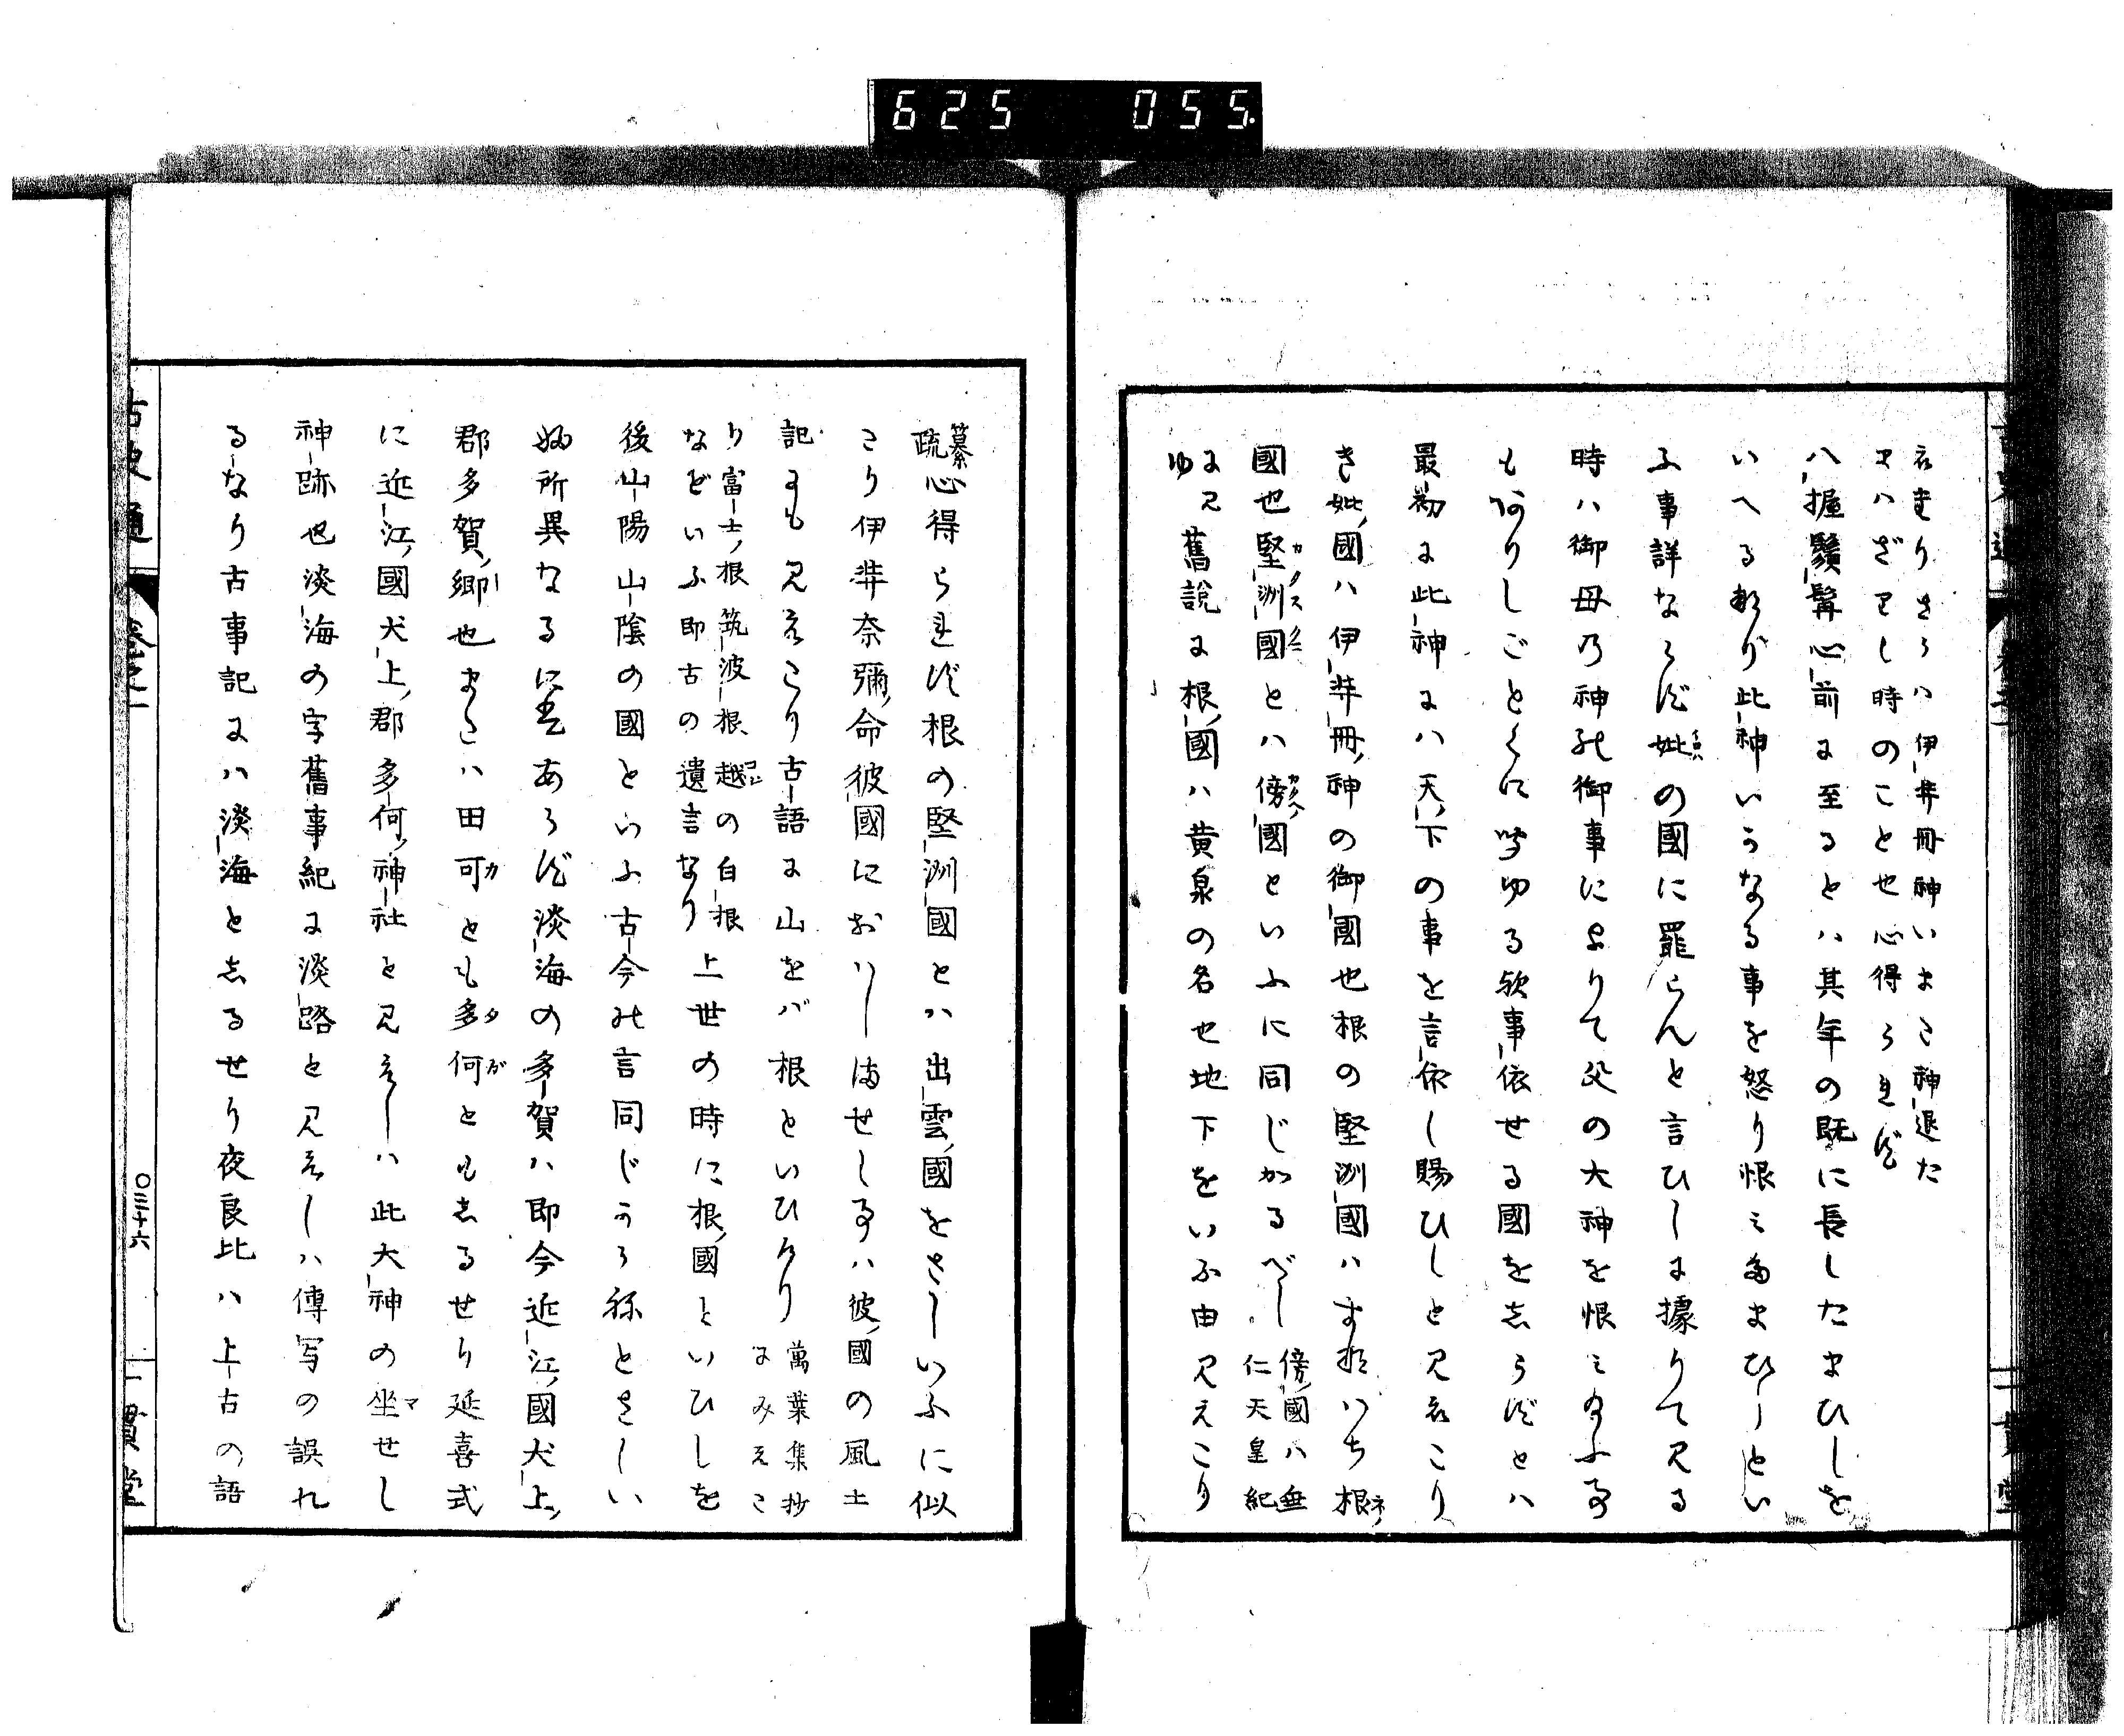 625 055.
衣まりさらハ伊弉冊神いまこ神退た
まハざりし時のことせ心得られず
八握鬚髯心前に至るとハ其年の既に長したまひしを
いへる也此神いうなる事を怒り恨ミ給まひしとい
ふ事詳ならず妣の國に罷らんと言ひしに據りて見る
時ハ御母乃神の御事によりて父の大神を恨ミ給ふ事
もありしごとくに聞ゆる歟事依せる國をしらずとハ
最初に此神にハ天下の事を言依し賜ひしと見えこり
き妣國ハ伊弉冊神の御國也根の堅洲國ハすなハち根
國也堅洲國とハ傍國といふに同じかるべし傍國ハ垂
仁天皇紀
に見
ゆ舊說に根國ハ黄泉の名也地下をいふ由見えこり
纂
疏心得られず根の堅洲國とハ出雲國をさしいふに似
こり伊弉奈彌命彼國におハしませし事ハ彼國の風土
記にも見えこり古語に山をバ根といひけり萬葉集抄
にみえこ
り富士根筑波根越の白根
などいふ即古の遺言なり上世の時に根國といひしを
後山陽山陰の國といふ古今の言同じうら称とさしい
ふ所異なるに基あらず淡海の多賀ハ即今近江國犬上
郡多賀郷也またハ田可とも多何ともしるせり延喜式
に近江國犬上郡多何神社と見えしハ此大神の坐せし
神跡也淡海の字舊事紀に淡路と見えしハ傳写の誤れ
るなり古事記にハ淡海としるせり夜良比ハ上古の語
古史通 卷之一
〇三十六
一貫堂